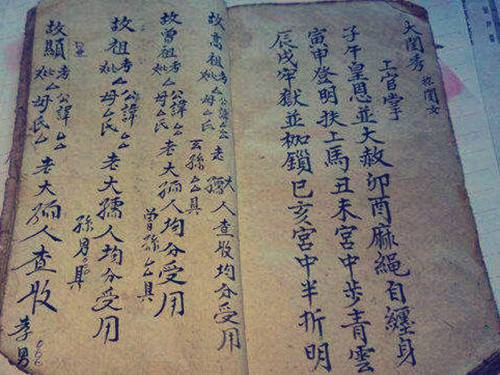 大関考 称閏女
上官掌
子午皇恩並大赦卯酉麻繩自纏身
寅申登明扶上馬丑未宮中步青雲
辰戌牢獄並枷鎖巳亥宮中半折明
故高祖考公諱厶厶老大孺人查收均分受用
妣厶母厶氏
玄孫厶厶具
故曾祖考公諱厶厶老大孺人均分受用
妣厶母厶氏
曾孫厶厶具
故祖考公諱厶厶老大孺人均分受用
妣厶母厶氏
孫男具
故顯考公諱厶厶老大孺人查收
妣厶母厶氏
孝男